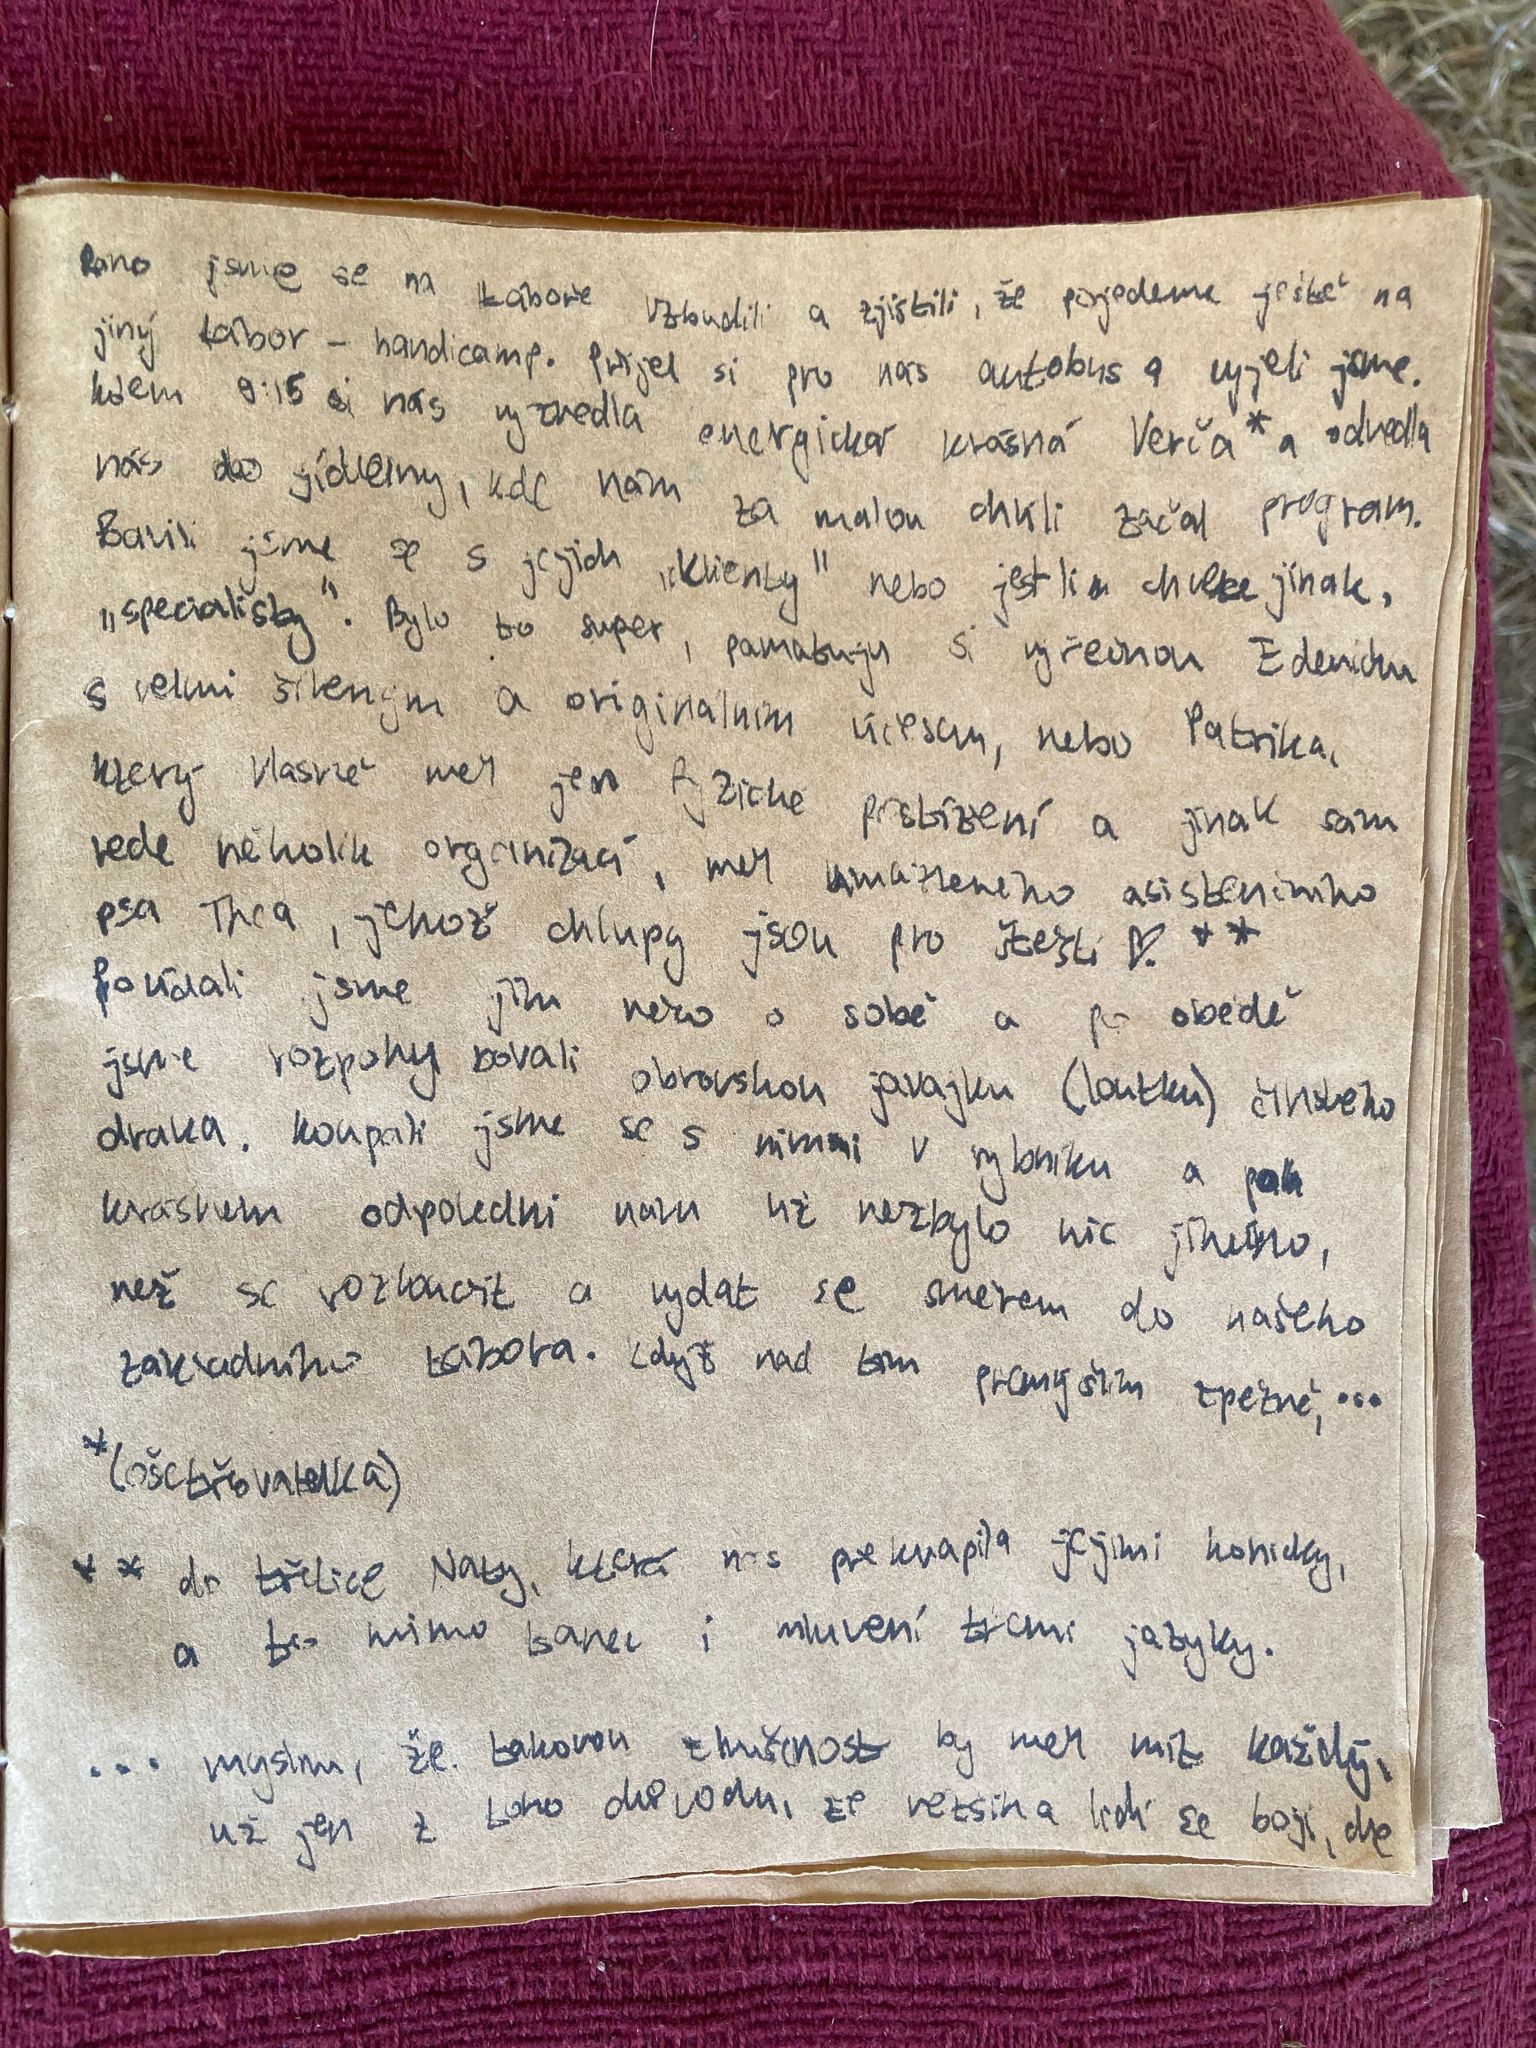 Ráno jsme se na táboře vzbudili a zjistili, že pojedeme ještě na
jiný tábor - handicamp. Přijel si pro nás autobus a vyjeli jsme.
kolem 9:15 si nás vyzvedla energická krásná Verča* a odvedla
nás do jídelny, kde nám za malou chvíli začal program.
Bavili jsme se s jejich „klienty" nebo jestli chcete jinak,
„specialisty". Bylo to super, pamatuju si výřečnou Zdeničku
s velmi šíleným a originálním účesem, nebo Patrika,
který vlastně měl jen fyzické postižení a jinak sám
vede několik organizací, měl umazleného asistenčního
psa Thea, jehož chlupy jsou pro štěstí ♡. **
Povídali jsme jim něco o sobě a po obědě
jsme rozpohybovali obrovskou javajku (loutku) čínského
draka. Koupali jsme se s nimi v rybníku a pak
krásném odpoledni nám už nezbylo nic jiného,
než se rozloučit a vydat se směrem do našeho
základního tábora. Když nad tím přemýšlím zpětně, ...
*(ošetřovatelka)
** do třetice Naty, která nás překvapila jejími koníčky,
a to mimo tanec i mluvení třemi jazyky.
... myslím, že takovou zkušenost by měl mít každý,
už jen z toho důvodu, že většina lidí se bojí, že